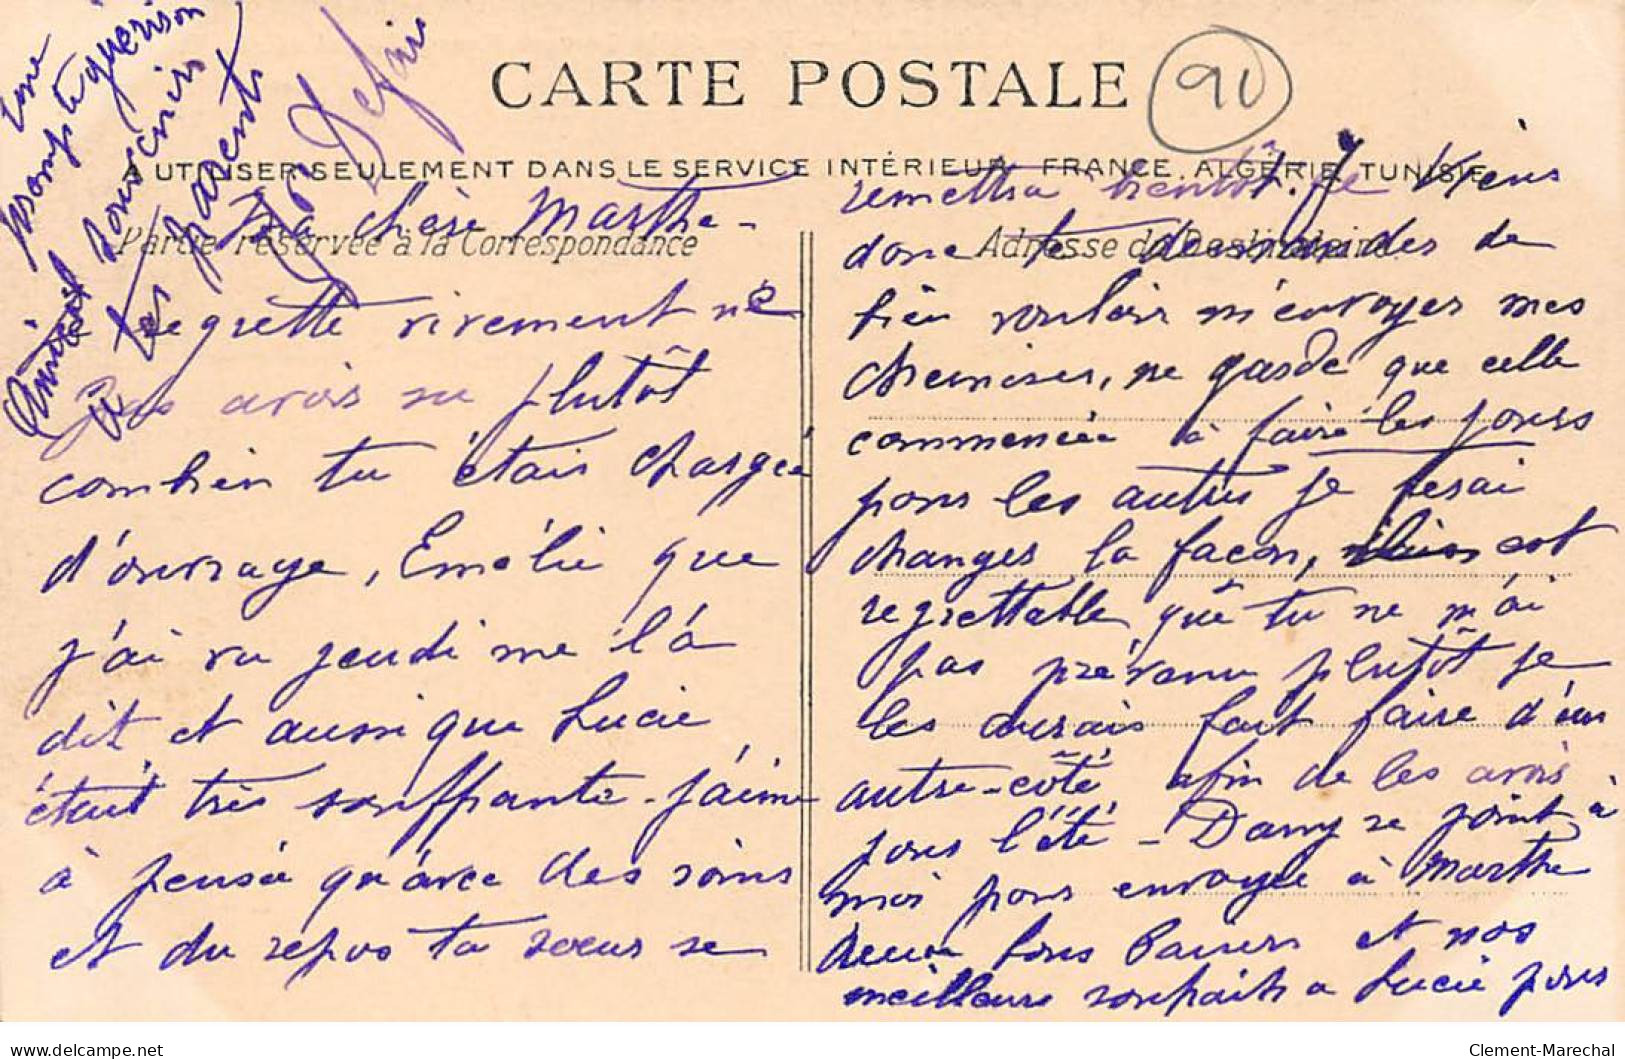 CARTE POSTALE
90
A UTILISER SEULEMENT DANS LE SERVICE INTÉRIEUR FRANCE, ALGÉRIE, TUNISIE
Partie réservée à la Correspondance
Adresse du Destinataire
Ma chère Marthe -
Je regrette vivement ne
pas avoir su plutôt
combien tu étais chargée
d'ouvrage, Emélie que
j'ai vu jeudi me l'à
dit et aussi que Lucie
était très souffrante - j'aime
à pensée qu'avec des soins
et du repos ta soeur se
remettra bientôt. Je viens
donc te demandes de
bien vouloir m'envoyer mes
chemises, ne garde que celle
commencée à faire les jours
pour les autres je ferai
changer la façon, est
regrettable que tu ne m'ai
pas prévenu plutôt je
les aurais fait faire d'un
autre-côté afin de les avoir
pour l'été - Dany se joint à
moi pour envoyée à Marthe
deux bons Baisers et nos
meilleurs souhaits a Lucie pour
une
prompte guérison
Amical souvenir
a tes parents